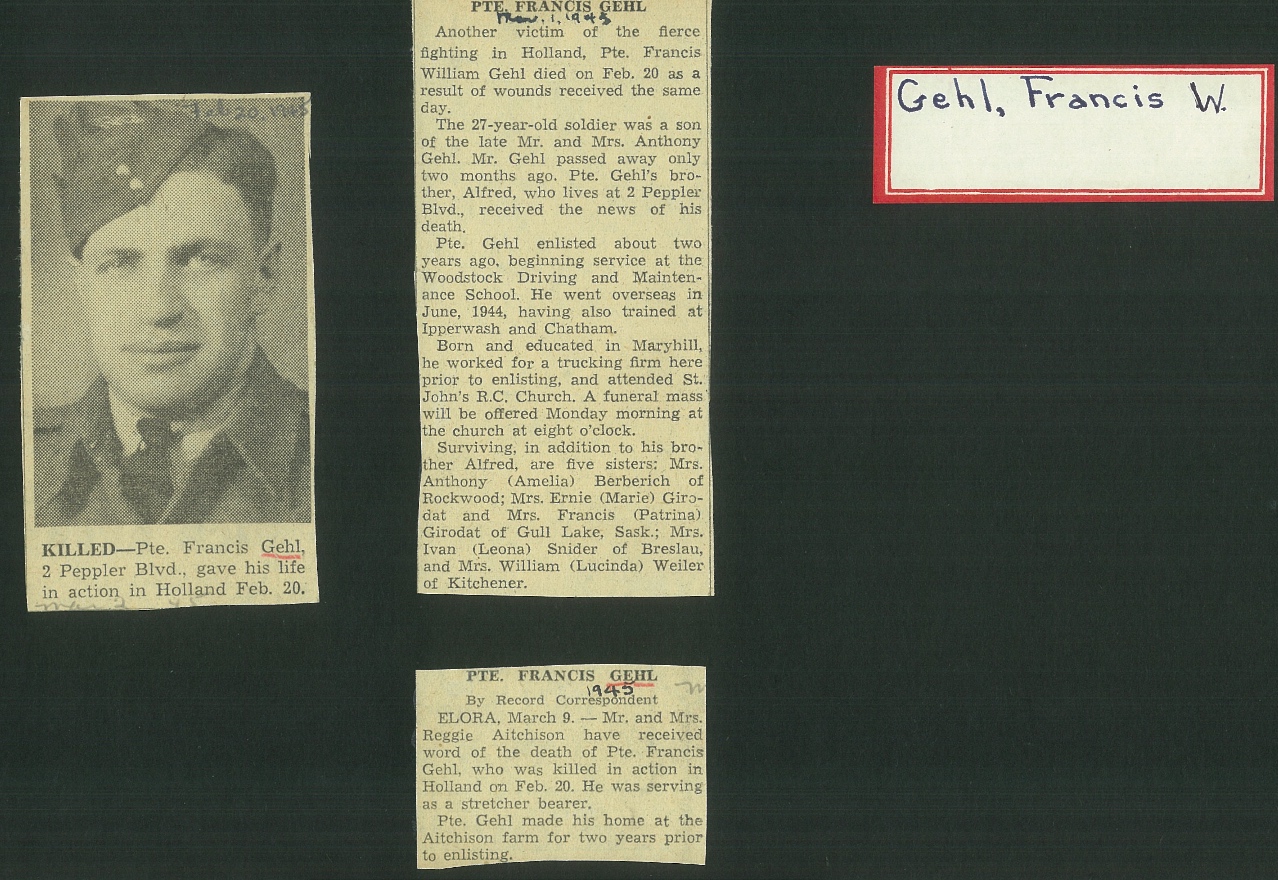 Feb 20, 1945
KILLED—Pte. Francis Gehl,
2 Peppler Blvd., gave his life
in action in Holland Feb. 20.
PTE. FRANCIS GEHL
Mar. 1, 1945
Another victim of the fierce
fighting in Holland, Pte. Francis
William Gehl died on Feb. 20 as a
result of wounds received the same
day.
The 27-year-old soldier was a son
of the late Mr. and Mrs. Anthony
Gehl. Mr. Gehl passed away only
two months ago. Pte. Gehl's bro-
ther, Alfred, who lives at 2 Peppler
Blvd., received the news of his
death.
Pte. Gehl enlisted about two
years ago, beginning service at the
Woodstock Driving and Mainten-
ance School. He went overseas in
June, 1944, having also trained at
Ipperwash and Chatham.
Born and educated in Maryhill,
he worked for a trucking firm here
prior to enlisting, and attended St.
John's R.C. Church. A funeral mass
will be offered Monday morning at
the church at eight o'clock.
Surviving, in addition to his bro-
ther Alfred, are five sisters: Mrs.
Anthony (Amelia) Berberich of
Rockwood; Mrs. Ernie (Marie) Giro-
dat and Mrs. Francis (Patrina)
Girodat of Gull Lake, Sask.; Mrs.
Ivan (Leona) Snider of Breslau,
and Mrs. William (Lucinda) Weiler
of Kitchener.
PTE. FRANCIS GEHL
1945
By Record Correspondent
ELORA, March 9. — Mr. and Mrs.
Reggie Aitchison have received
word of the death of Pte. Francis
Gehl, who was killed in action in
Holland on Feb. 20. He was serving
as a stretcher bearer.
Pte. Gehl made his home at the
Aitchison farm for two years prior
to enlisting.
Gehl, Francis W.